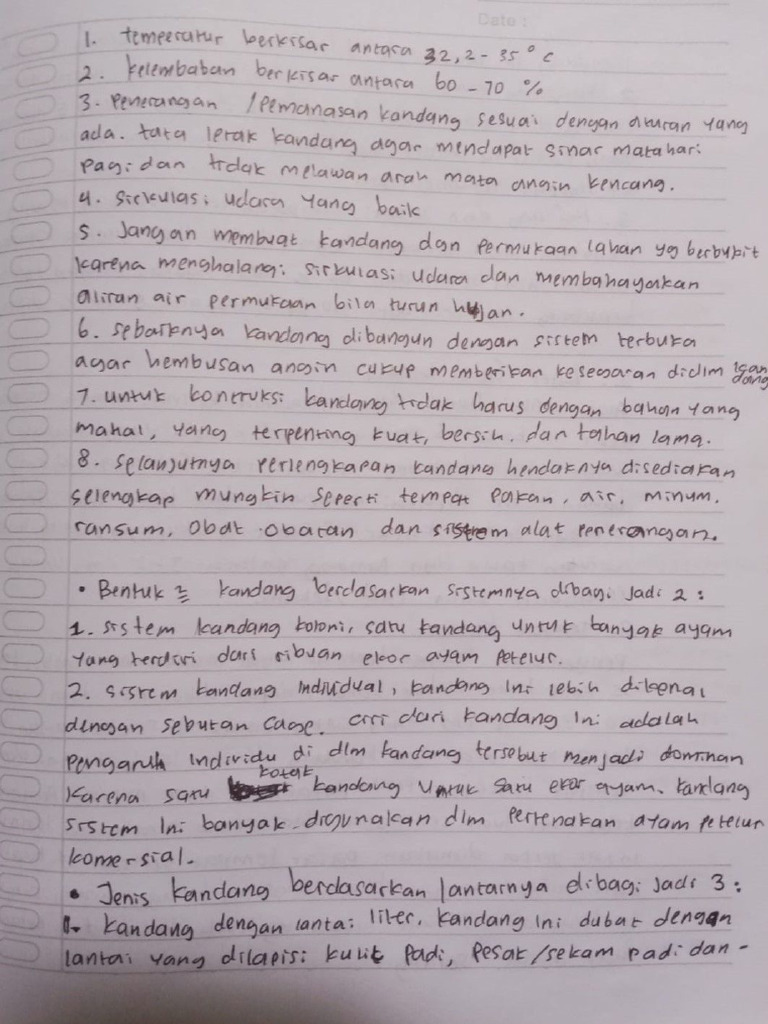 Date :
1. temperatur berkisar antara 32,2 - 35° c
2. kelembaban berkisar antara 60 - 70 %
3. Penerangan / Pemanasan kandang sesuai dengan aturan yang
ada. tata letak kandang agar mendapat sinar matahari
pagi dan tidak melawan arah mata angin kencang.
4. sirkulasi udara yang baik
5. Jangan membuat kandang dgn permukaan lahan yg berbukit
karena menghalangi sirkulasi udara dan membahayakan
aliran air permukaan bila turun hujan.
6. sebaiknya kandang dibangun dengan sistem terbuka
agar hembusan angin cukup memberikan kesegaran didlm kandang
7. untuk kontruksi kandang tidak harus dengan bahan yang
mahal, yang terpenting kuat, bersih. dan tahan lama.
8. selanjutnya perlengkapan kandang hendaknya disediakan
selengkap mungkin seperti tempat pakan, air, minum,
ransum, obat-obatan dan sistem alat penerangan.
• Bentuk2 kandang berdasarkan sistemnya dibagi jadi 2 :
1. sistem kandang koloni, satu kandang untuk banyak ayam
yang terdiri dari ribuan ekor ayam petelur.
2. sistem kandang individual, kandang ini lebih dikenal
dengan sebutan cage. ciri dari kandang ini adalah
pengaruh individu di dlm kandang tersebut menjadi dominan
karena satu kotak kandang untuk satu ekor ayam. kandang
sistem ini banyak digunakan dlm peternakan ayam petelur
komersial.
• Jenis kandang berdasarkan lantainya dibagi jadi 3 :
1. kandang dengan lantai liter, kandang ini dubat dengan
lantai yang dilapisi kulit padi, pesak/sekam padi dan -